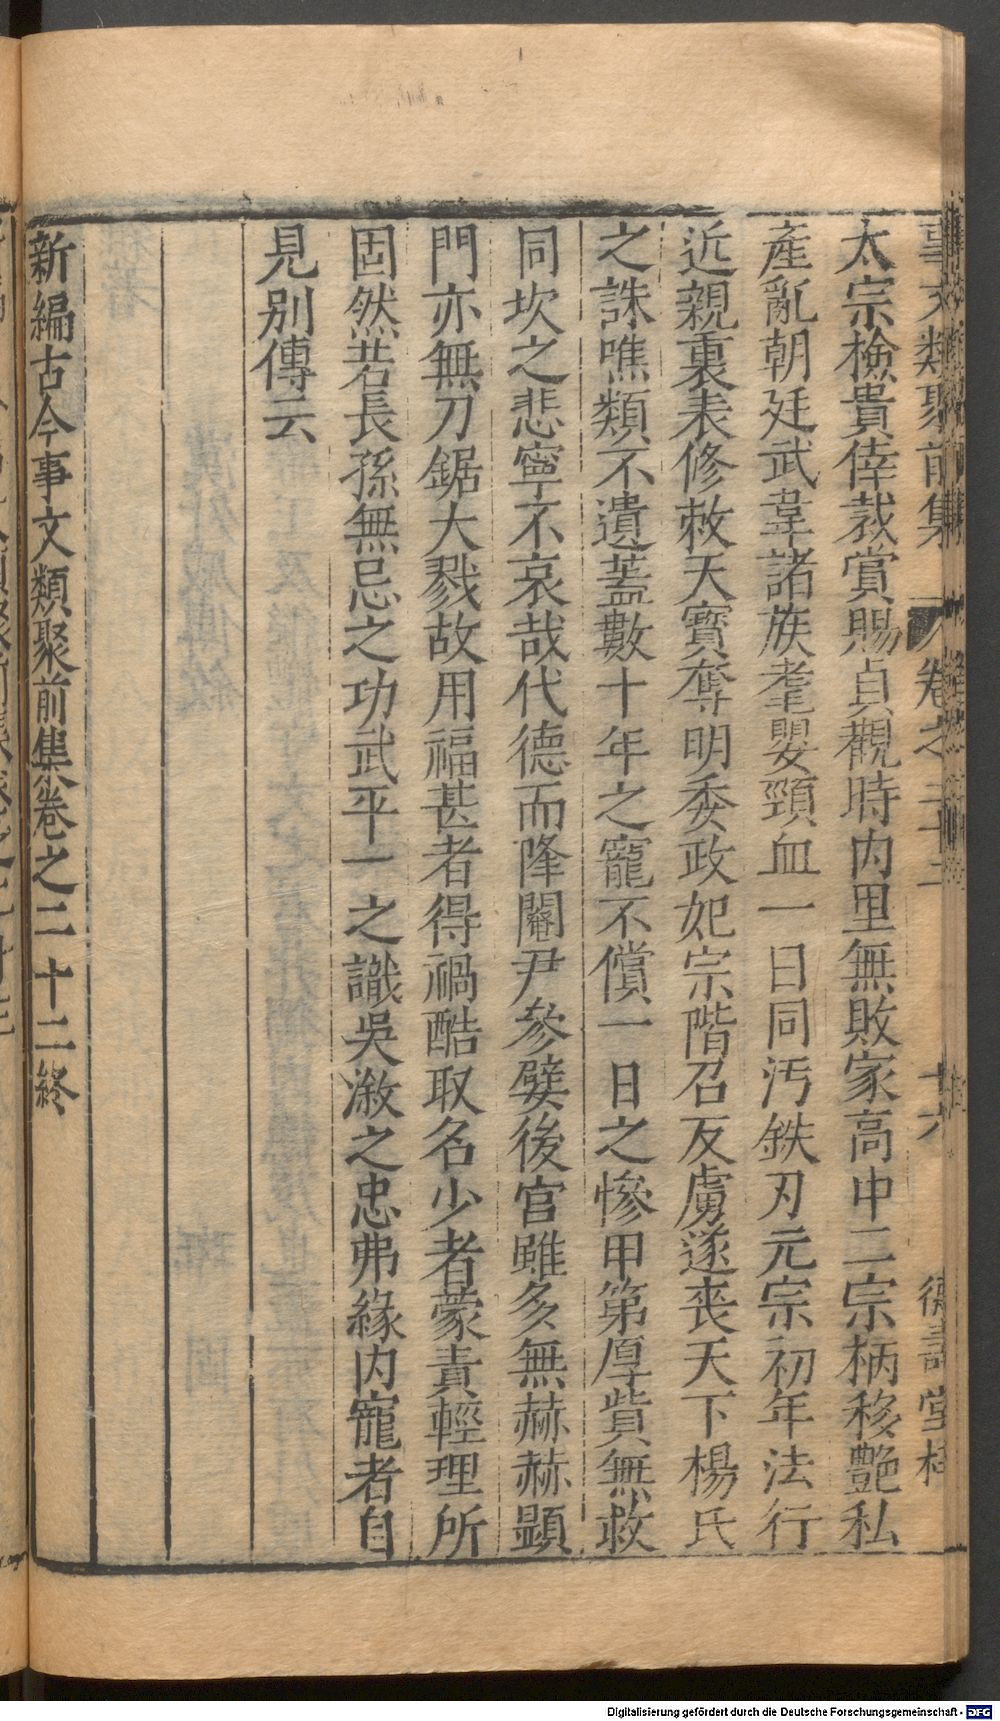 事文類聚前集 卷之二十二 十六 德壽堂梓
太宗檢貴倖裁賞賜貞觀時内里無敗家高中二宗柄移艷私
產亂朝廷武韋諸族耄嬰頸血一日同汚鉄刃元宗初年法行
近親裏表修敕天寶奪明委政妃宗階召反虜遂喪天下楊氏
之誅噍類不遺蓋數十年之寵不償一日之慘甲第厚貲無救
同坎之悲寧不哀哉代德而降閹尹參嬖後官雖多無赫赫顯
門亦無刀鋸大戮故用福甚者得禍酷取名少者蒙責輕理所
固然若長孫無忌之功武平一之識吳溆之忠弗緣内寵者自
見別傳云
新編古今事文類聚前集卷之二十二終
Digitalisierung gefördert durch die Deutsche Forschungsgemeinschaft - DFG